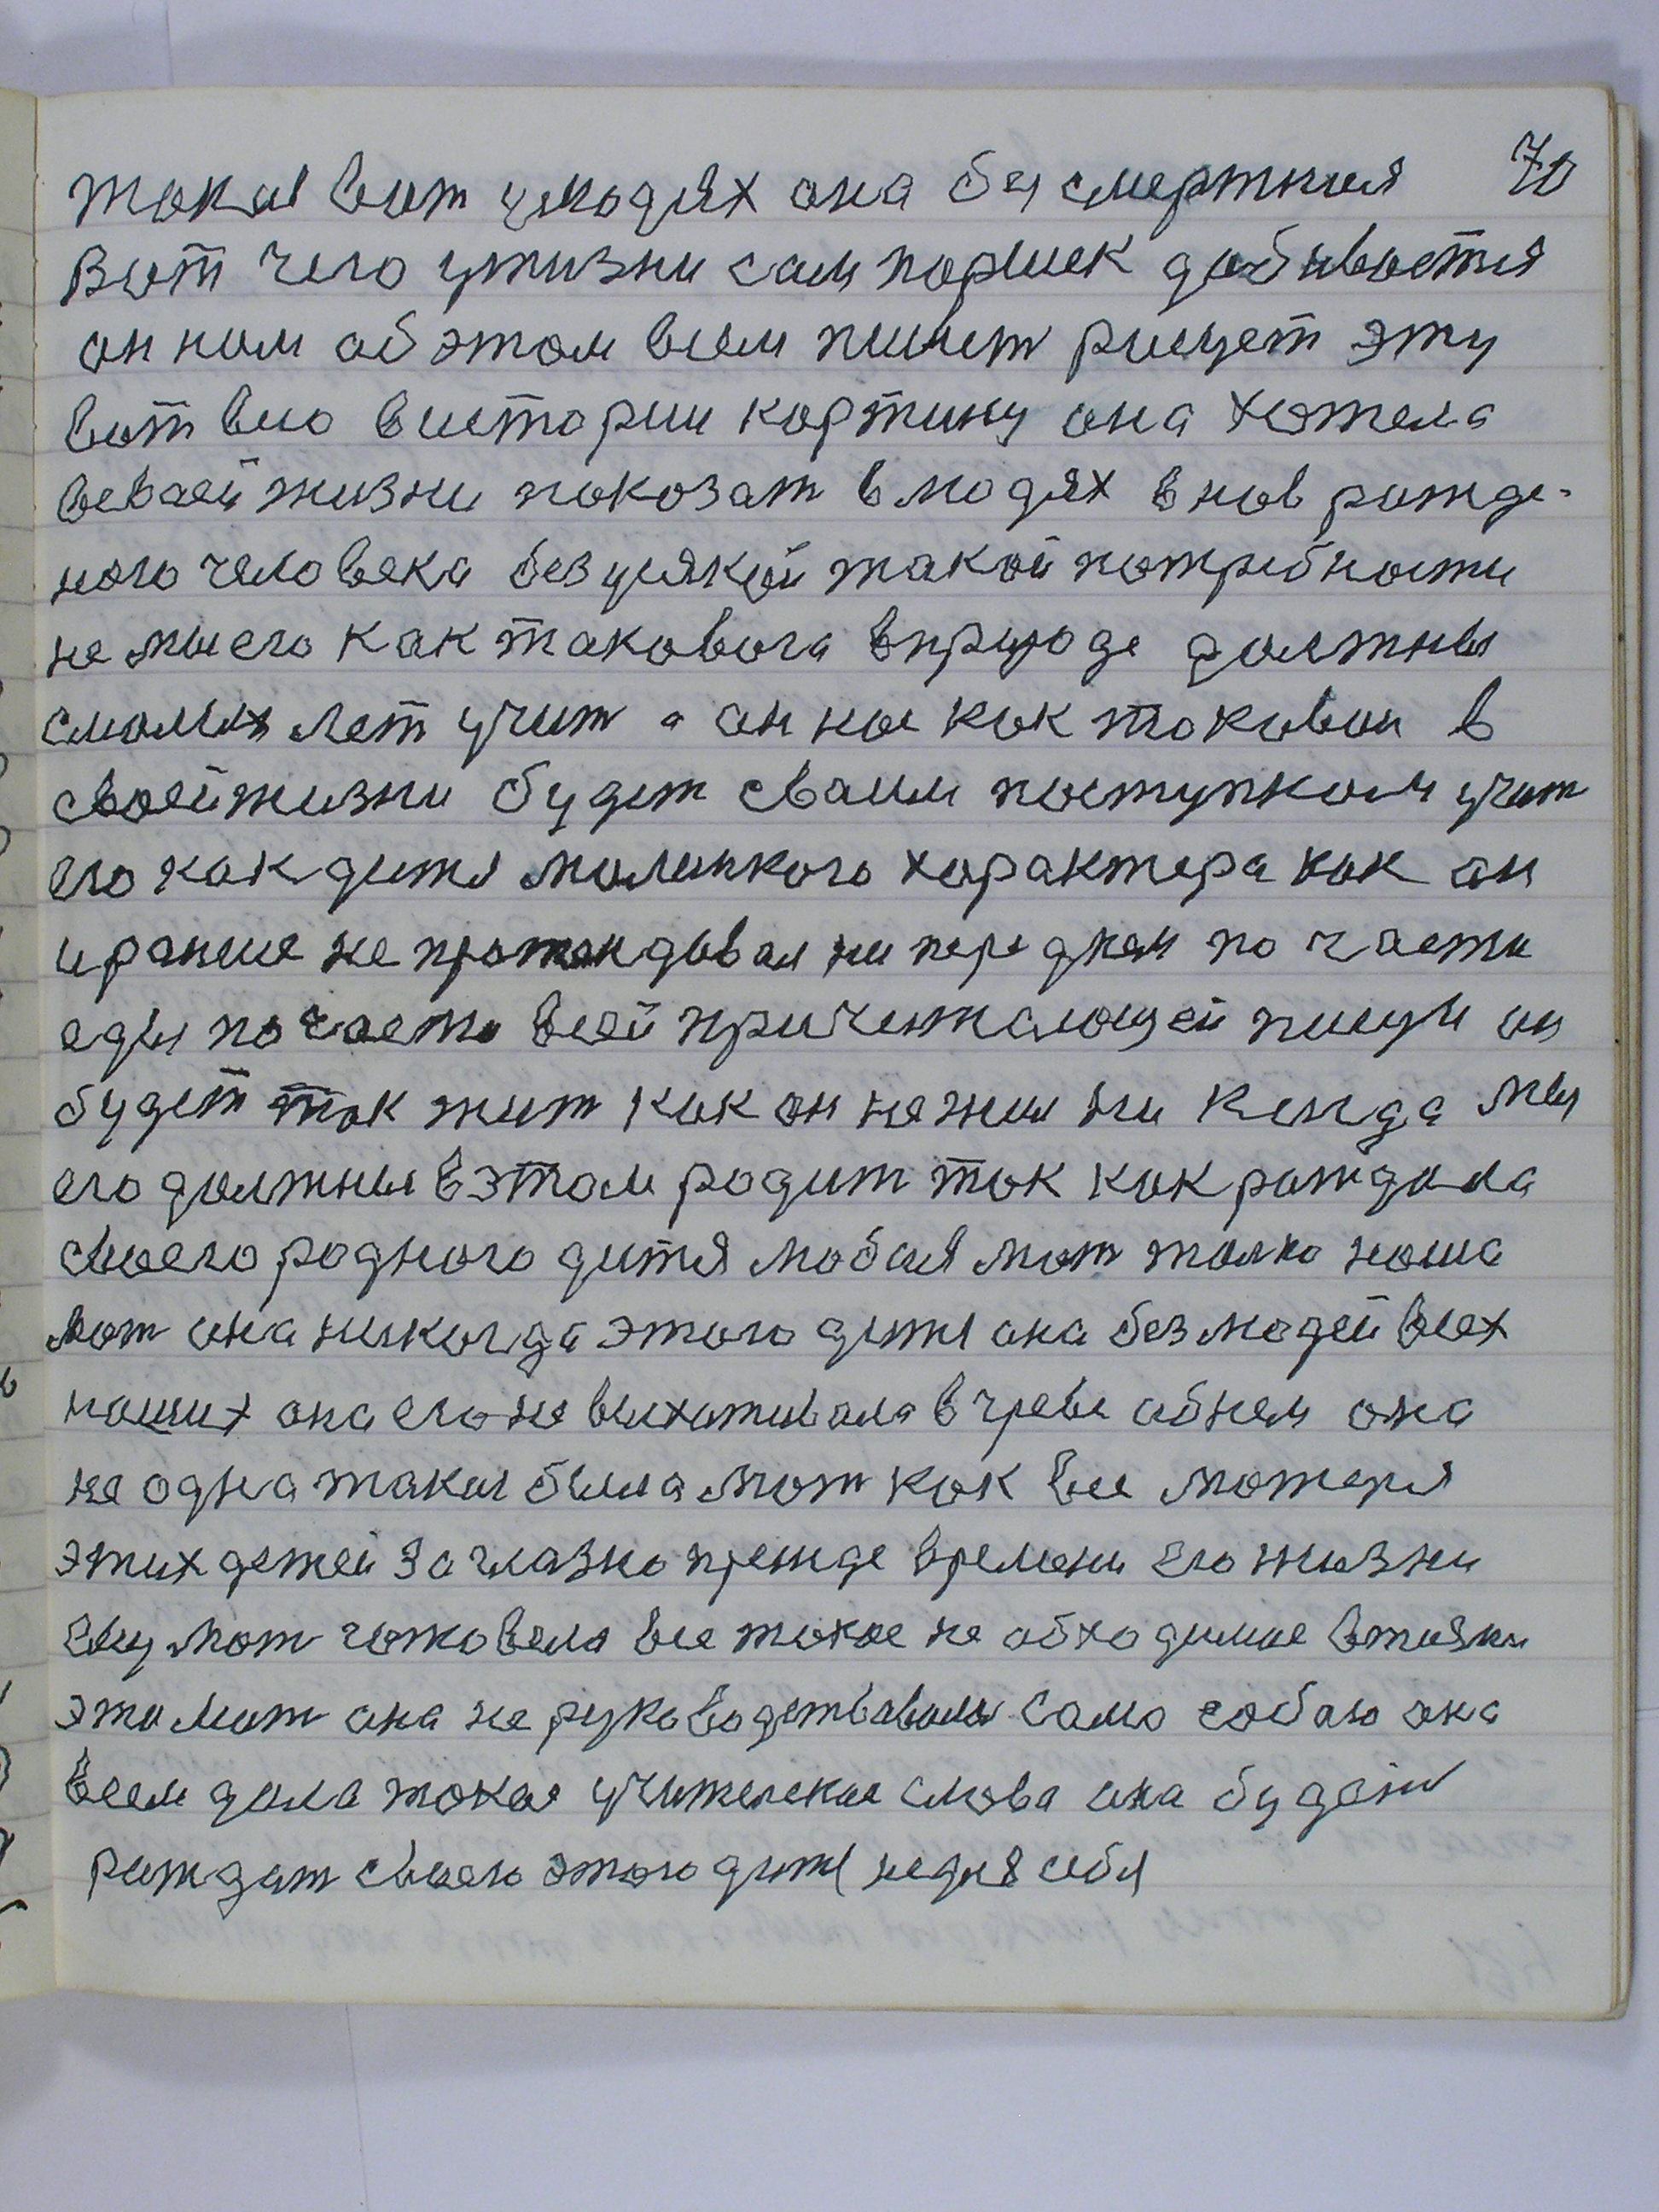 70
такая вот улюдях она бусмертная
Вот чего ужизни сам паршек дабивается
он нам об этом всем пишет рисует эту
вот вею вистории картину она хотела
всваей жизни показат влюдях внов рожде-
ного человека без усякой такой потребности
не мы его как таковога вприроде должны
смалых лет учит а он нас как таковой в
своейжизни будет сваим поступкам учит
его как дитя маленкого характера как он
ираньше не протендовал ни перед кем по части
еды по части всей причитающей пищи он
будет так жит как он не жил ни когда мы
его должны вэтом родит так как рождала
своего родного дитя любая мат толко наша
мат она никогда этого дитя она без людей всех
наших она его не выхативала вчреве абнем она
не одна такая была мат как все матеря
этих детей за глазно прежде времени его жизни
ему мат готовела все такое не обходимое вжизни
эта мат она не руководствавалы само собаю она
всем дала такое учителское слова она будет
рождат своего этого дитя недля себя